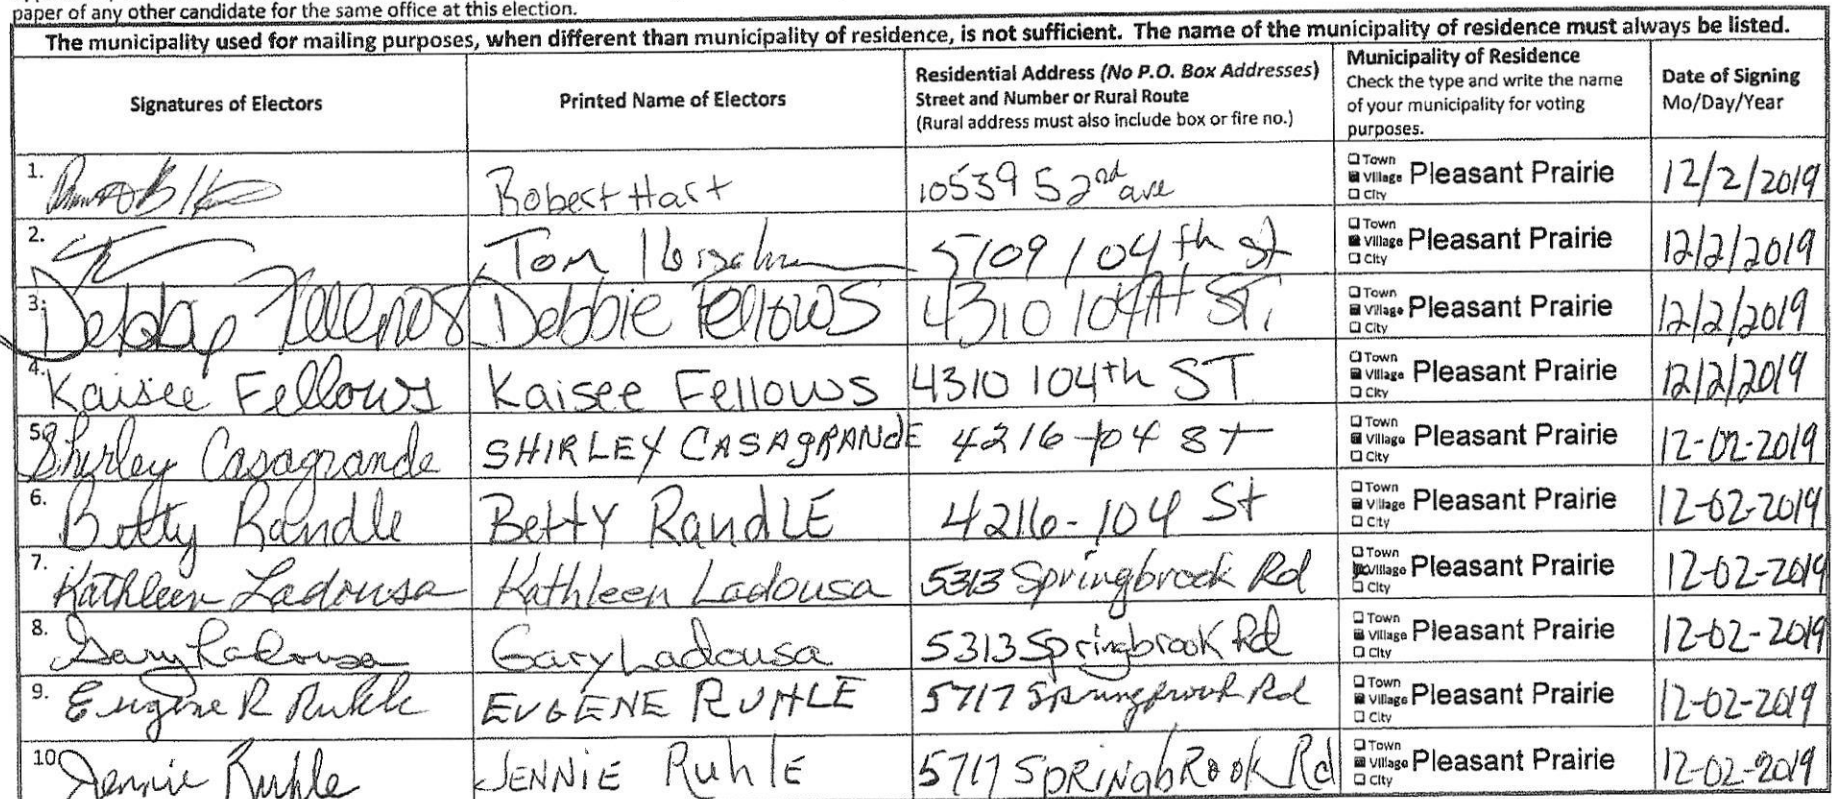 paper of any other candidate for the same office at this election.
The municipality used for mailing purposes, when different than municipality of residence, is not sufficient. The name of the municipality of residence must always be listed.
Signatures of Electors
Printed Name of Electors
Residential Address (No P.O. Box Addresses)
Street and Number or Rural Route
(Rural address must also include box or fire no.)
Municipality of Residence
Check the type and write the name
of your municipality for voting
purposes.
Date of Signing
Mo/Day/Year
1. Robert Hart 10539 52nd ave Town Village City Pleasant Prairie 12/2/2019
2. Tom 5109 104th st Town Village City Pleasant Prairie 12/2/2019
3. Debby Fellows Debbie Fellows 4310 104th ST. Town Village City Pleasant Prairie 12/2/2019
4. Kaisee Fellows Kaisee Fellows 4310 104th ST Town Village City Pleasant Prairie 12/2/2019
5. Shirley Casagrande SHIRLEY CASAgRANdE 4216-104 St Town Village City Pleasant Prairie 12-02-2019
6. Betty Randle BettY RandLE 4216-104 St Town Village City Pleasant Prairie 12-02-2019
7. Kathleen Ladousa Kathleen Ladousa 5313 Springbrook Rd Town Village City Pleasant Prairie 12-02-2019
8. Gary Ladousa Gary Ladousa 5313 Springbrook Rd Town Village City Pleasant Prairie 12-02-2019
9. Eugene R Ruhle EUGENE RUHLE 5717 Springbrook Rd Town Village City Pleasant Prairie 12-02-2019
10. Jennie Ruhle JENNiE RuhlE 5717 SpRiNgbRook Rd Town Village City Pleasant Prairie 12-02-2019